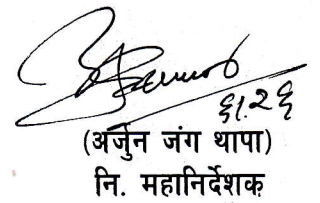 ६।२६
(अर्जुन जंग थापा)
नि. महानिर्देशक